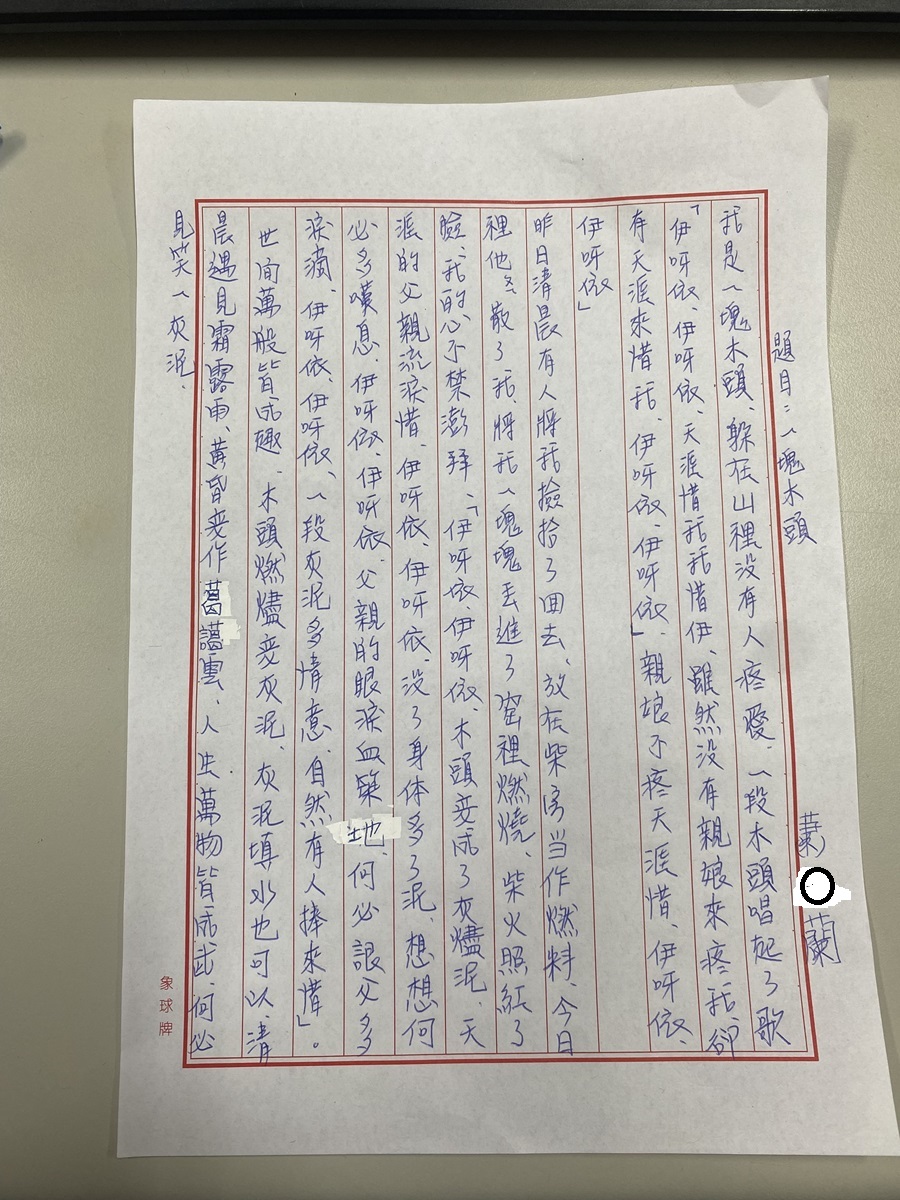 題目：一塊木頭
蕭○蘭
我是一塊木頭、躲在山裡没有人疼愛、一段木頭唱起了歌
「伊呀依、伊呀依、天涯惜我我惜伊、雖然没有親娘來疼我、卻
有天涯來惜我、伊呀依、伊呀依」、親娘不疼天涯惜、伊呀依、
伊呀依」
昨日清晨有人將我撿拾了回去、放在柴房当作燃料、今日
裡他 敲了我將我一塊塊丟進了窑裡燃燒、柴火照紅了
臉、我的心不禁澎拜、「伊呀依、伊呀依、木頭变成了灰燼泥、天
涯的父親流淚惜、伊呀依、伊呀依、没了身体多了泥、想想何
必多嘆息、伊呀依、伊呀依、父親的眼淚血築地、何必誤父多
淚滴、伊呀依、伊呀依、一段灰泥多情意、自然有人捧來惜」。
世间萬般皆成趣、木頭燃燼变灰泥、灰泥填水也可以、清
晨遇見霜露雨、黃昏变作 雲、人生萬物皆成武、何必
見笑一灰泥、
象球牌